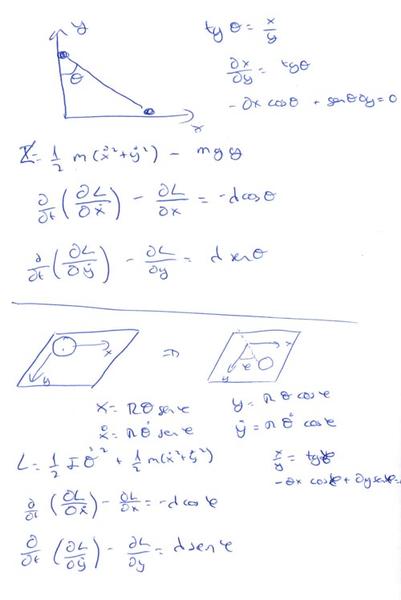 y
tg θ = x/y
θ
∂x/∂y = tgθ
x
- ∂x cosθ + senθ ∂y = 0
L = 1/2 m(ẋ² + ẏ²) - mgy
∂/∂t (∂L/∂ẋ) - ∂L/∂x = -d cosθ
∂/∂t (∂L/∂ẏ) - ∂L/∂y = d senθ
x ⇒ x
y y φ
x = R θ sen φ y = R θ cos φ
ẋ = R θ̇ sen φ ẏ = R θ̇ cos φ
L = 1/2 I θ̇² + 1/2 m(ẋ² + ẏ²) x/y = tg φ
- ∂x cos φ + ∂y sen φ =
∂/∂t (∂L/∂ẋ) - ∂L/∂x = -d cos φ
∂/∂t (∂L/∂ẏ) - ∂L/∂y = d sen φ